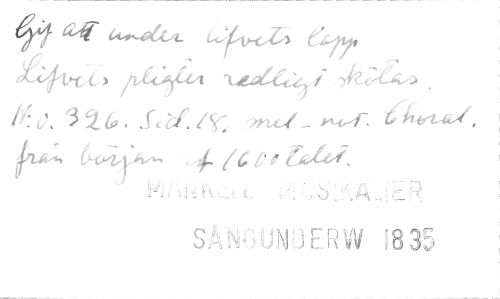 Gif att under lifvets lopp
Lifvets pligter redligt skötas.
N:o. 396. Sid. 18. mel-not. Choral.
från början af 1600talet.
MANKELL MUSIKALIER
SÅNGUNDERW 1835